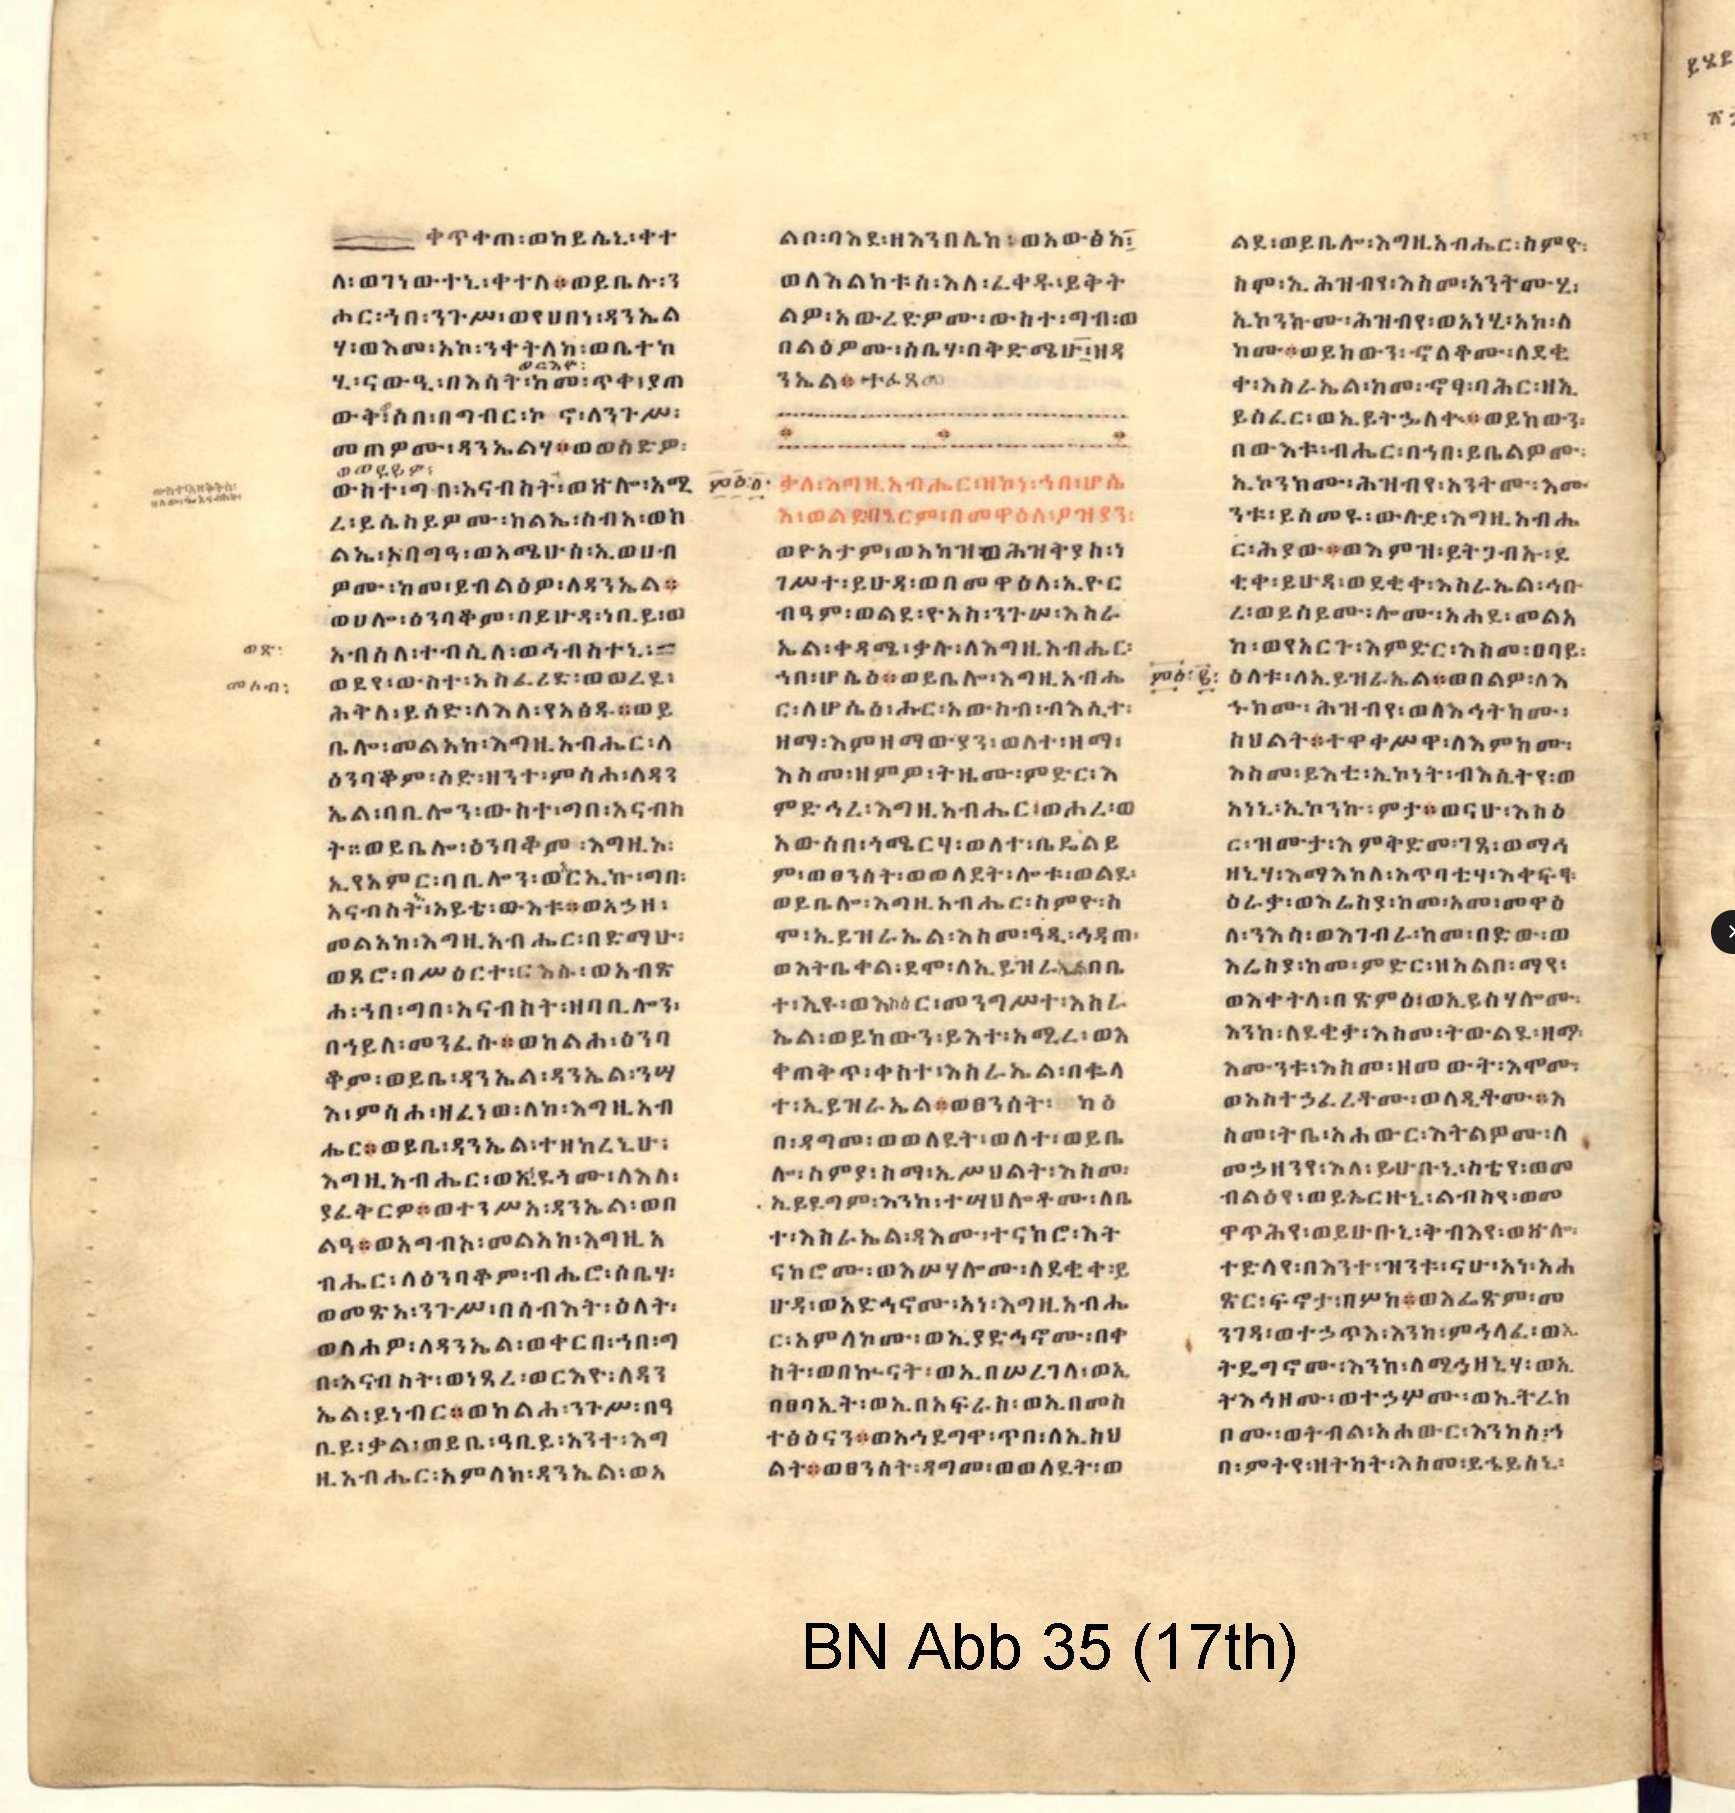 ቀጥቀጠ፡ወከይሴኒ፡ቀተ
ለ፡ወገነውተኒ፡ቀተለ።ወይቤሉ፡ን
ሑር፡ኀበ፡ንጉሥ፡ወየሀበነ፡ዳንኤል
ሃ፡ወእመ፡አኮ፡ንቀትለከ፡ወቤተከ
ወርእዮ፡
ሂ፡ናውዒ፡በእሳት፡ከመ፡ጥቀ፡ያጠ
ውት፡ሰበ፡በግብር፡ኮኖ፡ለንጉሥ፡
መጠዎሙ፡ዳንኤልሃ።ወወሰድዎ፡
ወወደይዎ፡
ውስተ፡ግበ፡አናብስት፡ወጽሎ፡አሚ
ረ፡ይሴስይዎሙ፡ከልኤ፡ሰብአ፡ወክ
ልኤ፡አባግዓ፡ወአሜሁሰ፡ኢወሀብ
ዎሙ፡ከመ፡ይብልዕዎ፡ለዳንኤል።
ወሀሎ፡ዕንባቆም፡በይሁዳ፡ነቢይ፡ወ
ወጽ፡
አብሰለ፡ተብሲለ፡ወኅብስተኒ፡
መሶብ፡
ወደየ፡ውስተ፡አስፈሪድ፡ወወረደ፡
ሕትለ፡ይሰድ፡ለእለ፡የአፅዱ።ወይ
ቤሎ፡መልአከ፡እግዚአብሔር፡ለ
ዕንባቆም፡ስድ፡ዘንተ፡ምሳሐ፡ለዳን
ኤል፡ባቢሎን፡ውስተ፡ግበ፡አናብስ
ት።ወይቤሎ፡ዕንባቆም፡እግዚአ፡
ኢየአምር፡ባቢሎን፡ወርኢኩ፡ግበ፡
አናብስት፡አይቴ፡ውእቱ።ወአኃዘ፡
መልአከ፡እግዚአብሔር፡በድማሁ፡
ወጾሮ፡በሥዕርተ፡ርእሱ፡ወአብጽ
ሐ፡ኀበ፡ግበ፡አናብስት፡ዘባቢሎን፡
በኀይለ፡መንፈሱ።ወከልሐ፡ዕንባ
ቆም፡ወይቤ፡ዳንኤል፡ዳንኤል፡ንሣ
እ፡ምሳሐ፡ዘፈነወ፡ለከ፡እግዚአብ
ሔር።ወይቤ፡ዳንኤል፡ተዘከረኒሁ፡
እግዚአብሔር፡ወኢየኀድጎሙ፡ለእለ፡
ያፈቅርዎ።ወተንሥአ፡ዳንኤል፡ወበ
ልዓ።ወአግብአ፡መልአከ፡እግዚአ
ብሔር፡ለዕንባቆም፡ብሔሮ፡ሰቤሃ፡
ወመጽአ፡ንጉሥ፡በሰብእት፡ዕለት፡
ወለሐዎ፡ለዳንኤል፡ወቀርበ፡ኀበ፡ግ
በ፡አናብስት፡ወነጸረ፡ወርእዮ፡ለዳን
ኤል፡ይነብር።ወከልሐ፡ንጉሥ፡በዓ
ቢይ፡ቃል፡ወይቤ፡ዓቢይ፡አንተ፡እግ
ዚአብሔር፡አምላከ፡ዳንኤል፡ወአ
ልቦ፡ባእደ፡ዘእንበሌከ፡ወአውፅአ፡
ወለእልክቱሰ፡እለ፡ፈቀዱ፡ይቅት
ልዎ፡አውረድዎሙ፡ውስተ፡ግብ፡ወ
በልዕዎሙ፡ሰቤሃ፡በቅድሜሁ፡ዘዳ
ንኤል።ተፈጸመ
ምዕ፡፩፡
ቃለ፡እግዚአብሔር፡ዘኮነ፡ኀበ፡ሆሴ
እ፡ወልደ፡ብኤርም፡በመዋዕለ፡ዖዝያን፡
ወዮአታም፡ወአክዝ፡ወሕዝቅያስ፡ነ
ገሥተ፡ይሁዳ፡ወበመዋዕለ፡ኢዮር
ብዓም፡ወልደ፡ዮአስ፡ንጉሠ፡እስራ
ኤል፡ቀዳሜ፡ቃሉ፡ለእግዚአብሔር፡
ኀበ፡ሆሴዕ።ወይቤሎ፡እግዚአብሔ
ር፡ለሆሴዕ፡ሑር፡አውስብ፡ብእሲተ፡
ዘማ፡እምዘማውያን፡ወለተ፡ዘማ፡
እስመ፡ዘምዎ፡ትዜሙ፡ምድር፡እ
ምድኅረ፡እግዚአብሔር፡ወሐረ፡ወ
አውሰበ፡ጎሜርሃ፡ወለተ፡ቤዴልይ
ም፡ወፀንሰት፡ወወለደት፡ሎቱ፡ወልደ፡
ወይቤሎ፡እግዚአብሔር፡ስምዮ፡ስ
ሞ፡ኢይዝራኤል፡እስመ፡ዓዲ፡ኅዳጠ፡
ወእትቤቀል፡ደሞ፡ለኢይዝራኤል፡በቤ
ተ፡ኢዩ፡ወእስዕር፡መንግሥተ፡እስራ
ኤል፡ወይከውን፡ይእተ፡አሚረ፡ወእ
ቀጠቅጥ፡ቀስተ፡እስራኤል፡በቈላ
ተ፡ኢይዝራኤል።ወፀንሰት፡ ካዕ
በ፡ዳግመ፡ወወለደት፡ወለተ፡ወይቤ
ሎ፡ስምያ፡ስማ፡ኢሥህልት፡እስመ፡
ኢይደግም፡እንከ፡ተሣህሎቶሙ፡ለቤ
ተ፡እስራኤል፡ዳእሙ፡ተናክሮ፡እት
ናከሮሙ፡ወእሣሃሎሙ፡ለደቂቀ፡ይ
ሁዳ፡ወአድኅኖሙ፡አነ፡እግዚአብሔ
ር፡አምላኮሙ፡ወኢያድኅኖሙ፡በቀ
ስት፡ወበኲናት፡ወኢበሠረገላ፡ወኢ
በፀባኢት፡ወኢበአፍራስ፡ወኢበመስ
ተፅዕናን።ወአኅደግዋ፡ጥበ፡ለኢሥህ
ልት።ወፀንሰት፡ዳግመ፡ወወለደት፡ወ
ልደ፡ወይቤሎ፡እግዚአብሔር፡ስምዮ፡
ስሞ፡ኢሕዝብየ፡እስመ፡አንትሙሂ፡
ኢኮንክሙ፡ሕዝብየ፡ወአነሂ፡አኮ፡ለ
ክሙ።ወይከውን፡ኆለቆሙ፡ለደቂ
ቀ፡እስራኤል፡ከመ፡ኆፃ፡ባሕር፡ዘኢ
ይሰፈር፡ወኢይትኃለቍ።ወይከውን፡
በውእቱ፡ብሔር፡በኀበ፡ይቤልዎሙ፡
ኢኮንክሙ፡ሕዝብየ፡አንትሙ፡እሙ
ንቱ፡ይሰመዩ፡ውሉደ፡እግዚአብሔ
ር፡ሕያው።ወእምዝ፡ይትጋብኡ፡ደ
ቂቀ፡ይሁዳ፡ወደቂቀ፡እስራኤል፡ኅቡ
ረ፡ወይሰይሙ፡ሎሙ፡አሐደ፡መልአ
ከ፡ወየአርጉ፡እምድር፡እስመ፡ዐባይ፡
ምዕ፡፪፡
ዕለቱ፡ለኢይዝራኤል።ወበልዎ፡ለእ
ኁክሙ፡ሕዝብየ፡ወለእኅትክሙ፡
ሥህልት።ተዋቀሥዋ፡ለእምክሙ፡
እስመ፡ይእቲ፡ኢኮነት፡ብእሲትየ፡ወ
አነኒ፡ኢኮንኩ፡ምታ።ወናሁ፡እስዕ
ር፡ዝሙታ፡እምቅድመ፡ገጻ፡ወማኅ
ዘኒሃ፡እማእከለ፡አጥባቲሃ፡እቀፍፃ፡
ዕራቃ፡ወእሬስያ፡ከመ፡አመ፡መዋዕ
ለ፡ንእሳ፡ወእገብራ፡ከመ፡በድው፡ወ
እሬስያ፡ከመ፡ምድር፡ዘአልቦ፡ማየ፡
ወእቀትላ፡በጽምዕ፡ወኢይሣሃሎሙ፡
እንከ፡ለደቂቃ፡እስመ፡ትውልደ፡ዘማ፡
እሙንቱ፡እስመ፡ዘመውት፡እሞሙ፡
ወአስተኃፈረቶሙ፡ወላዲቶሙ።እ
ስመ፡ትቤ፡አሐውር፡እትልዎሙ፡ለ
መኃዘንየ፡እለ፡ይሁቡኒ፡ስቴየ፡ወመ
ብልዕየ፡ወይኤርዙኒ፡ልብስየ፡ወመ
ዋጥሕየ፡ወይሁቡኒ፡ቅብእየ፡ወኵሎ፡
ተድላየ፡በእንተ፡ዝንቱ፡ናሁ፡አነ፡አሐ
ጽር፡ፍኖታ፡በሦክ።ወእፈጽም፡መ
ንገዳ፡ወተኃጥእ፡እንከ፡ምኅላፈ፡ወኢ
ትዴግኖሙ፡እንከ፡ለሚኃዘኒሃ፡ወኢ
ትእኅዘሙ፡ወተኃሦሙ፡ወኢትረክ
ቦሙ፡ወትብል፡አሐውር፡እንከሰ፡ኀ
በ፡ምትየ፡ዘትካት፡እስመ፡ይኄይሰኒ፡
BN Abb 35 (17th)